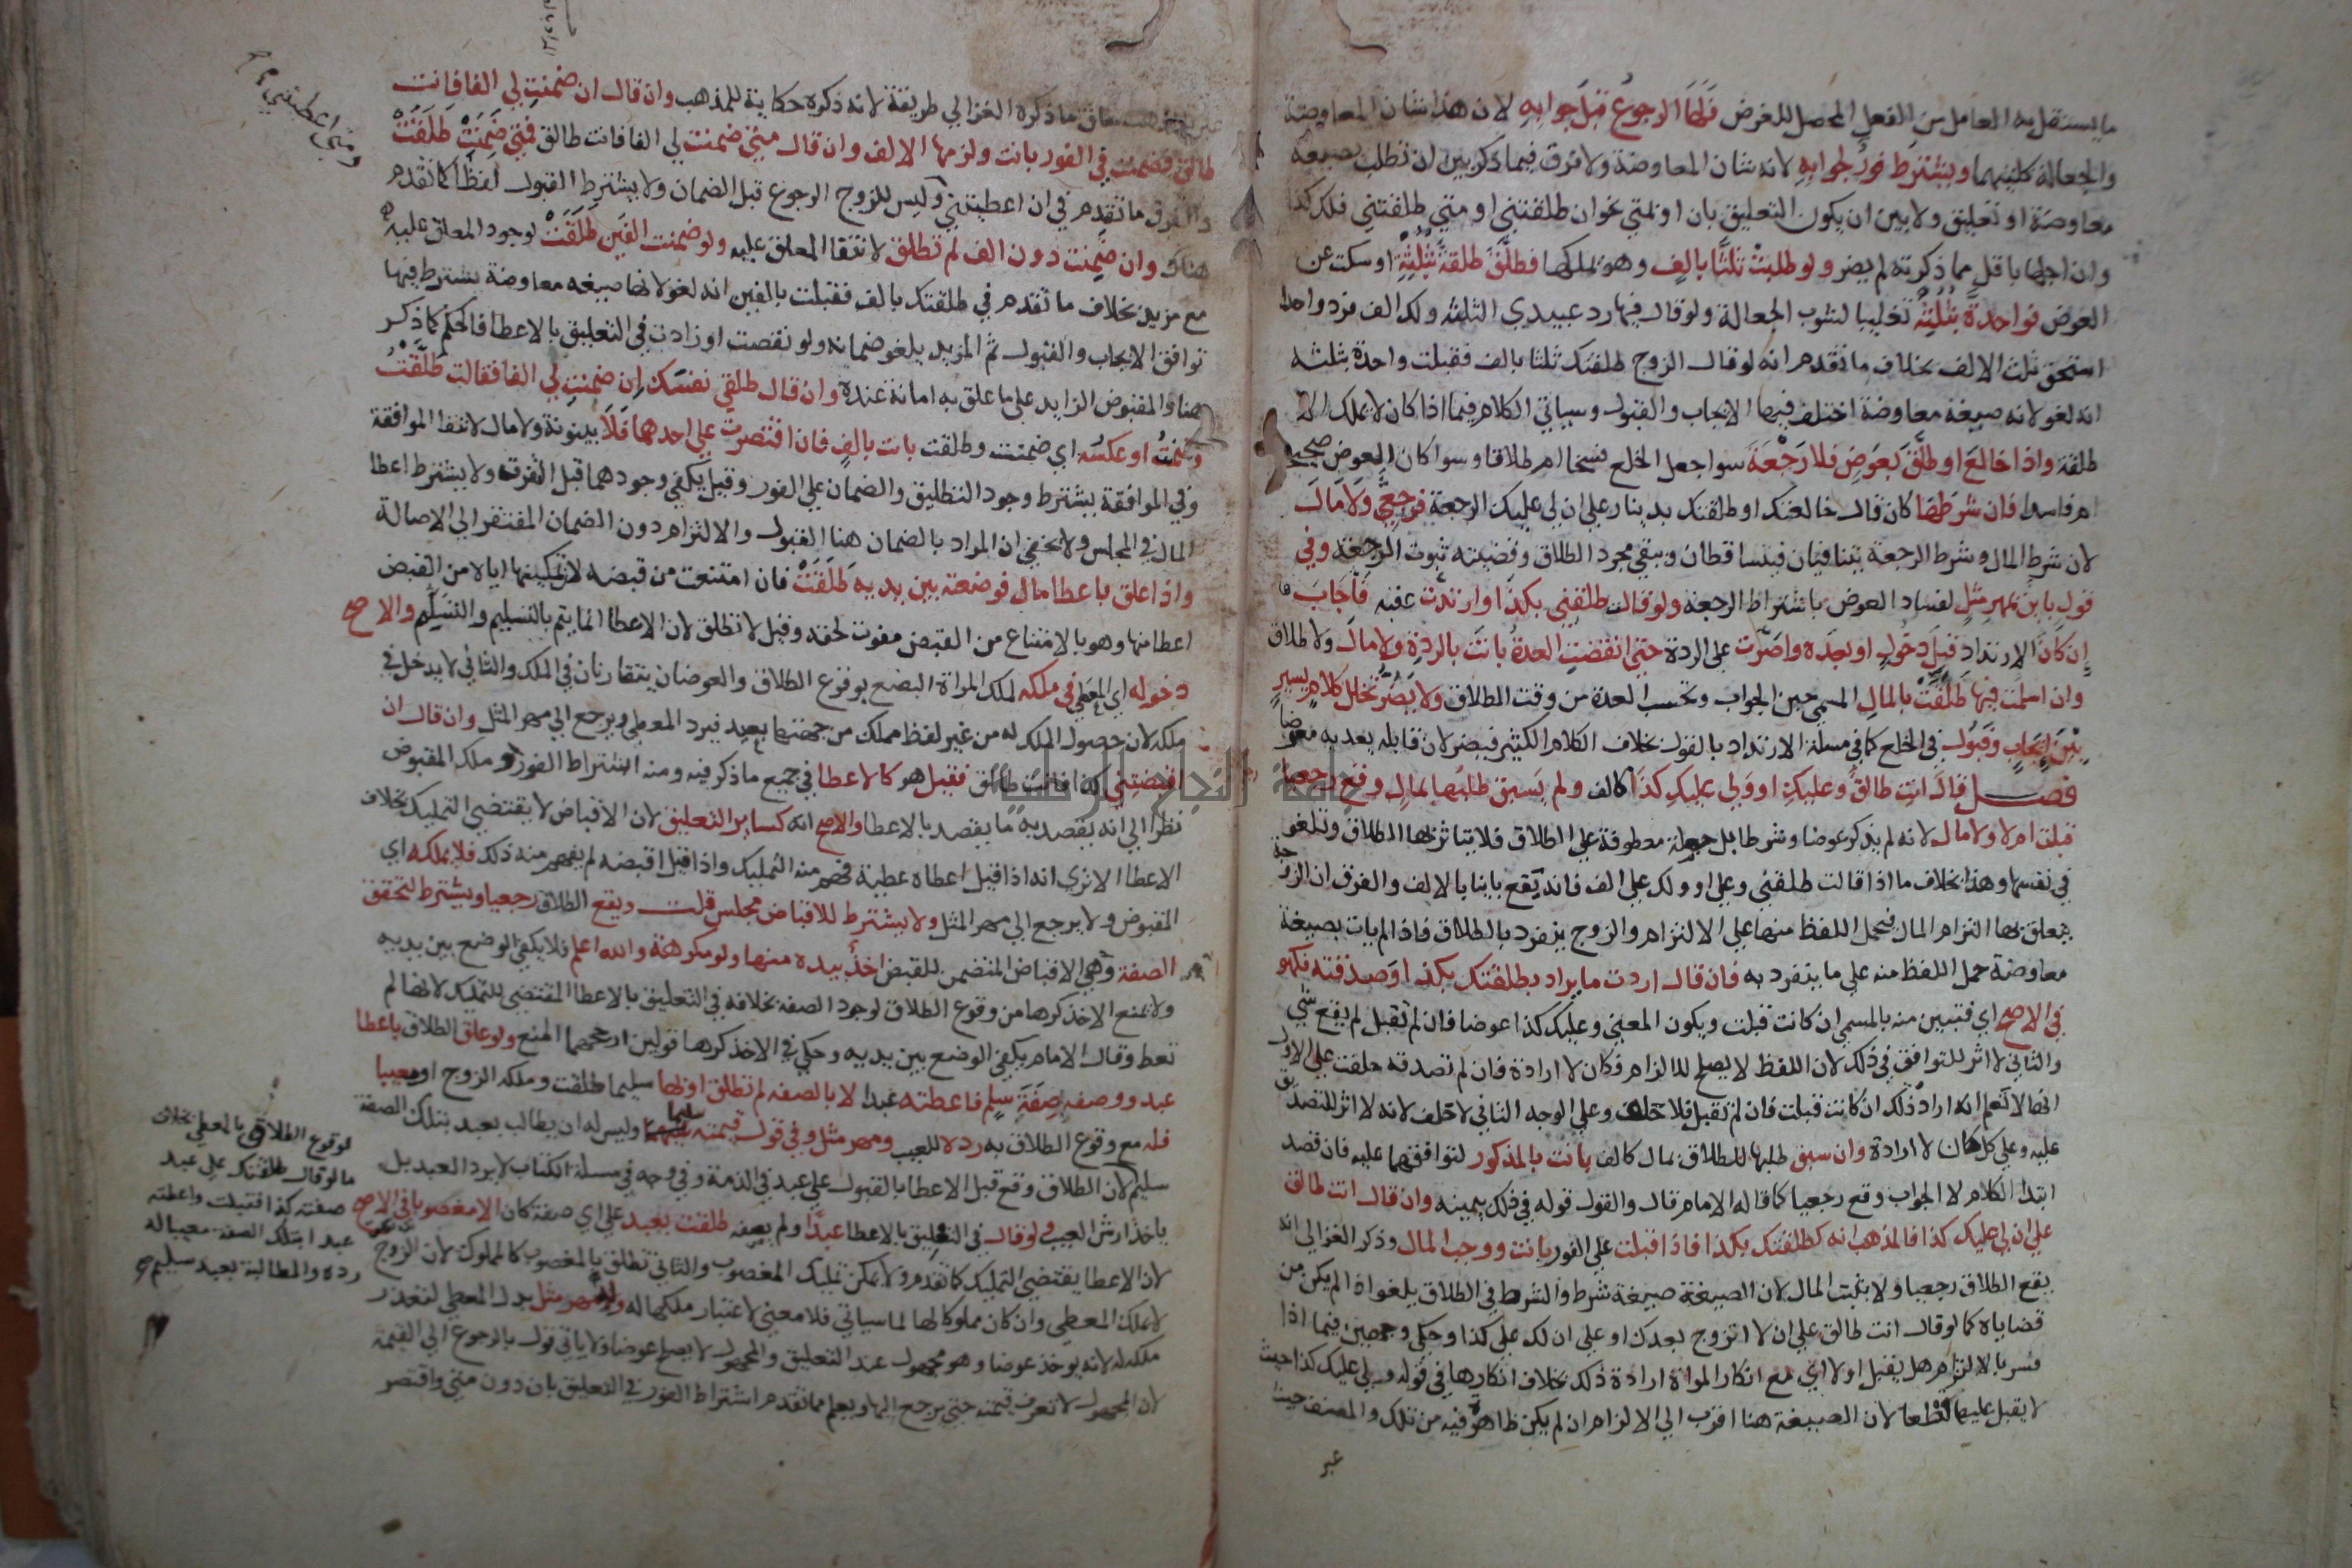 ما يستقل به العامل من الفعل المحصل للغرض فَلَهَا الرجوعُ قبلَ جوابِهِ لان هذا شان المعاوضة
والجعالة كلتيهما ويشترَط فورٌ لجوابِهِ لانه شان المعاوضة ولا فرق فيما ذكر بين ان تطلب بصيغة
معاوضة او تعليق ولا بين ان يكون التعليق بان او بمتى نحو ان طلقتني او متى طلقتني فلك كذا
وان اجابها باقل مما ذكرته لم يضر ولو طلبتْ ثلثًا بالفٍ وهو يملكها فطلَّقَ طلقةً بثُلُثِهِ او سكت عن
العوض فواحدةٌ بثُلثِهِ تغليبا لشوب الجعالة ولو قال فيها رد عبيدي الثلثه ولك الف فرد واحدا
استحق ثلث الالف بخلاف ما تقدم انه لو قال الزوج طلقتك ثلثا بالف فقبلت واحدة بثلثه
انه لغو لانه صيغة معاوضة اختلف فيها الايجاب والقبول وسياتي الكلام فيما اذا كان لا يملك الا
طلقة واذا خالعَ او طلَّقَ بعوَضٍ فلا رَجْعَةَ سوا جعل الخلع فسخا ام طلاقا وسوا كان العوض صحيحا
ام فاسدا فان شرَطَها كان قال خالعتك او طلقتك بدينار على ان لي عليك الرجعة فرجعيٌّ ولا مالَ
لان شرط المال وشرط الرجعة يتنافيان فيتساقطان ويبقى مجرد الطلاق وقضيته ثبوت الرجعة وفي
قولٍ باينٌ بمهرِ مثلٍ لفساد العوض باشتراط الرجعة ولو قالت طلقني بكذا وارتدتْ عقبه فَأَجَابَ
إن كان الارتداد قبلَ دخولٍ او بعدَه واصَرَّت على الردة حتى انقضت العدةُ بانتْ بالردةِ ولا مالَ ولا طلاق
وان اسلمت فيها طَلُقَتْ بالمالِ المسمى حين الجواب وتحسب العدة من وقت الطلاق ولا يَضُرُّ تخلل كلامٍ يسيرٍ
بَيْنَ إيجابٍ وقَبُولٍ في الخلع كما في مسلة الارتداد بالقول بخلاف الكلام الكثير فيضر لان قابله يعد به معرضا
فصل قالَ انتِ طالقٌ وعليكِ او ولي عليكِ كذَا كالف ولم يَسبِق طلبُها بمالٍ وقع رجعيا
قبلت ام لا ولا مال لانه لم يذكر عوضا ولا شرطا بل جملة معطوفة على الطلاق فلا يتاثر بها الطلاق وتلغو
في نفسها وهذا بخلاف ما اذا قالت طلقني وعلي او ولك علي الف فانه يقع باينا بالالف والفرق ان الزوجة
يتعلق بها التزام المال فيحمل اللفظ منها على الالتزام والزوج ينفرد بالطلاق فاذا لم يات بصيغة
معاوضة حمل اللفظ منه على ما ينفرد به فان قال اردت ما يراد بطلقتك بكذا وصدقته فكهو
في الاصح اي فتبين منه بالمسمى ان كانت قبلت ويكون المعنى وعليك كذا عوضا فان لم تقبل لم يقع شي
والثاني لا اثر للتوافق في ذلك لان اللفظ لا يصلح للالزام فكان لا ارادة فان لم تصدقه حلفت على الاول
انها لا تعلم انه اراد ذلك ان كانت قبلت فان لم تقبل فلا حلف وعلى الوجه الثاني لا حلف لانه لا اثر للتصديق
عليه وعلى كل كان لا ارادة وان سبق طلبها للطلاق بمال كالف بانت بالمذكور لتوافقهما عليه فان قصد
ابتدا الكلام لا الجواب وقع رجعيا كما قاله الامام قال والقول قوله في ذلك بيمينه وان قال انت طالق
على ان لي عليك كذا فالمذهب انه كطلقتك بكذا فاذا قبلت على الفور بانت ووجب المال وذكر الغزالي انه
يقع الطلاق رجعيا ولا يثبت المال لان الصيغة صيغة شرط والشرط في الطلاق يلغو اذا لم يكن من
قضاياه كما لو قال انت طالق على ان لا اتزوج بعدك او على ان لك علي كذا وحكي وجهين فيما اذا
فسر بالالزام هل يقبل او لا اي مع انكار المراة ارادة ذلك بخلاف انكارها في قوله ولي عليك كذا حيث
لا يقبل عليها قطعا لان الصيغة هنا اقرب الى الالزام ان لم يكن ظاهره فيه من تلك والمصنف حيث
عبر
عبر بالمذهب ساق ما ذكره الغزالي طريقة لانه ذكره حكاية للمذهب وان قال ان ضمنتِ لي الفا فانت
طالق فضمنت في الفور بانت ولزمها الالف وان قال متى ضمنت لي الفا فانت طالق فمتى ضَمِنَتْ طَلَقَتْ
والفرق ما تقدم في ان اعطيتني وليس للزوج الرجوع قبل الضمان ولا يشترط القبول لفظا كما تقدم
هناك وان ضمنت دون الف لم تطلق لانتفا المعلق عليه ولو ضمنت الفين طَلَقَتْ لوجود المعلق عليه
مع مزيد بخلاف ما تقدم في طلقتك بالف فقبلت بالفين انه لغو لانها صيغه معاوضة يشترط فيها
توافق الايجاب والقبول ثم المزيد يلغو ضمانه ولو نقصت او زادت في التعليق بالاعطا فالحكم كما ذكر
هنا والمقبوض الزايد على ما علق به امانة عنده وان قال طلقي نفسك إن ضمنت لي الفا فقالت طَلَّقْتُ
وضمنتُ او عكسُه اي ضمنت وطلقت بانت بالفٍ فان اقتصرت على احدهما فلا بينونة ولا مال لانتفا الموافقة
وفي الموافقة يشترط وجود التطليق والضمان على الفور وقيل يكفي وجودهما قبل التفرق ولا يشترط اعطا
المال في المجلس ولا يخفى ان المراد بالضمان هنا القبول والالتزام دون الضمان المفتقر الى الاصالة
واذا علق باعطا مال فوضعته بين يديه طَلَقَتْ فان امتنعت من قبضه لان تمكينها اياه من القبض
اعطا منها وهو بالامتناع من القبض مفوت لحقه وقيل لا تطلق لان الاعطا انما يتم بالتسليم والتسلم والاصح
دخوله اي المعطى في ملكه لملك المراة البضع بوقوع الطلاق والعوضان يتقارنان في الملك والثاني لا يدخل في
ملكه لان حصول الملك له من غير لفظ مملك من جهتها بعيد فيرد المعطى ويرجع الى مهر المثل وان قال ان
اقبضتِني كذا فانتِ طالق فقيل هو كالاعطا في جميع ما ذكر فيه ومنه اشتراط الفور وملك المقبوض
نظرا الى انه يقصد به ما يقصد بالاعطا والاصح انه كساير التعليق لان الاقباض لا يقتضي التمليك بخلاف
الاعطا الا ترى انه اذا قيل اعطاه عطية فهم منه التمليك واذا قيل اقبضه لم يفهم منه ذلك فلا يملكه اي
المقبوض ولا يرجع الى مهر المثل ولا يشترط للاقباض مجلس قلت ويقع الطلاق رجعيا ويشترط لتحقق
الصفة وهي الاقباض المتضمن للقبض اخذٌ بيده منها ولو مكرهة والله اعلم فلا يكفي الوضع بين يديه
ولا يمنع الاخذ كرها من وقوع الطلاق لوجود الصفه بخلافه في التعليق بالاعطا المقتضي للتمليك لانها لم
تعط وقال الامام يكفي الوضع بين يديه وحكى في الاخذ كرها قولين ارجحهما المنع ولو علق الطلاق باعطا
عبد ووصفه صِفَةَ سلم فاعطته عبدا لا بالصفه لم تطلق او بها سليما طلقت وملكه الزوج او معيبا
فله مع وقوع الطلاق به رده للعيب ومهر مثل وفي قول قيمته سليما وليس له ان يطالب بعبد بتلك الصفة
سليم لان الطلاق وقع قبل الاعطا بالقبول على عبد في الذمة وفي وجه في مسلة الكتاب لا يرد العبد بل
ياخذ ارش العيب ولو قال في التعليق بالاعطا عبدًا ولم يصفه طلقت بعبد على اي صفة كان الا مغصوبا في الاصح
لان الاعطا يقتضي التمليك كما تقدم ولا يمكن تمليك المغصوب والثاني تطلق بالمغصوب كالمملوك لان الزوج
لا يملك المعطى وان كان مملوكا لها لما سياتي فلا معنى لاعتبار ملكها له وله مهر مثل بدل المعطى لتعذر
ملكه له لانه يوخذ عوضا وهو مجهول عند التعليق والمجهول لا يصلح عوضا ولا ياتي قول بالرجوع الى القيمة
لان المجهول لا تعرف قيمته حتى يرجع اليها ويعلم مما تقدم اشتراط الفور في التعليق بان دون متى واقتصر
ومتى اعطيتني
لوقوع الطلاق بالمعطى بخلاف
ما لو قال طلقتك على عبد
صفته كذا فقبلت واعطته
عبدا بتلك الصفة معيبا له
رده والمطالبة بعبد سليم صح